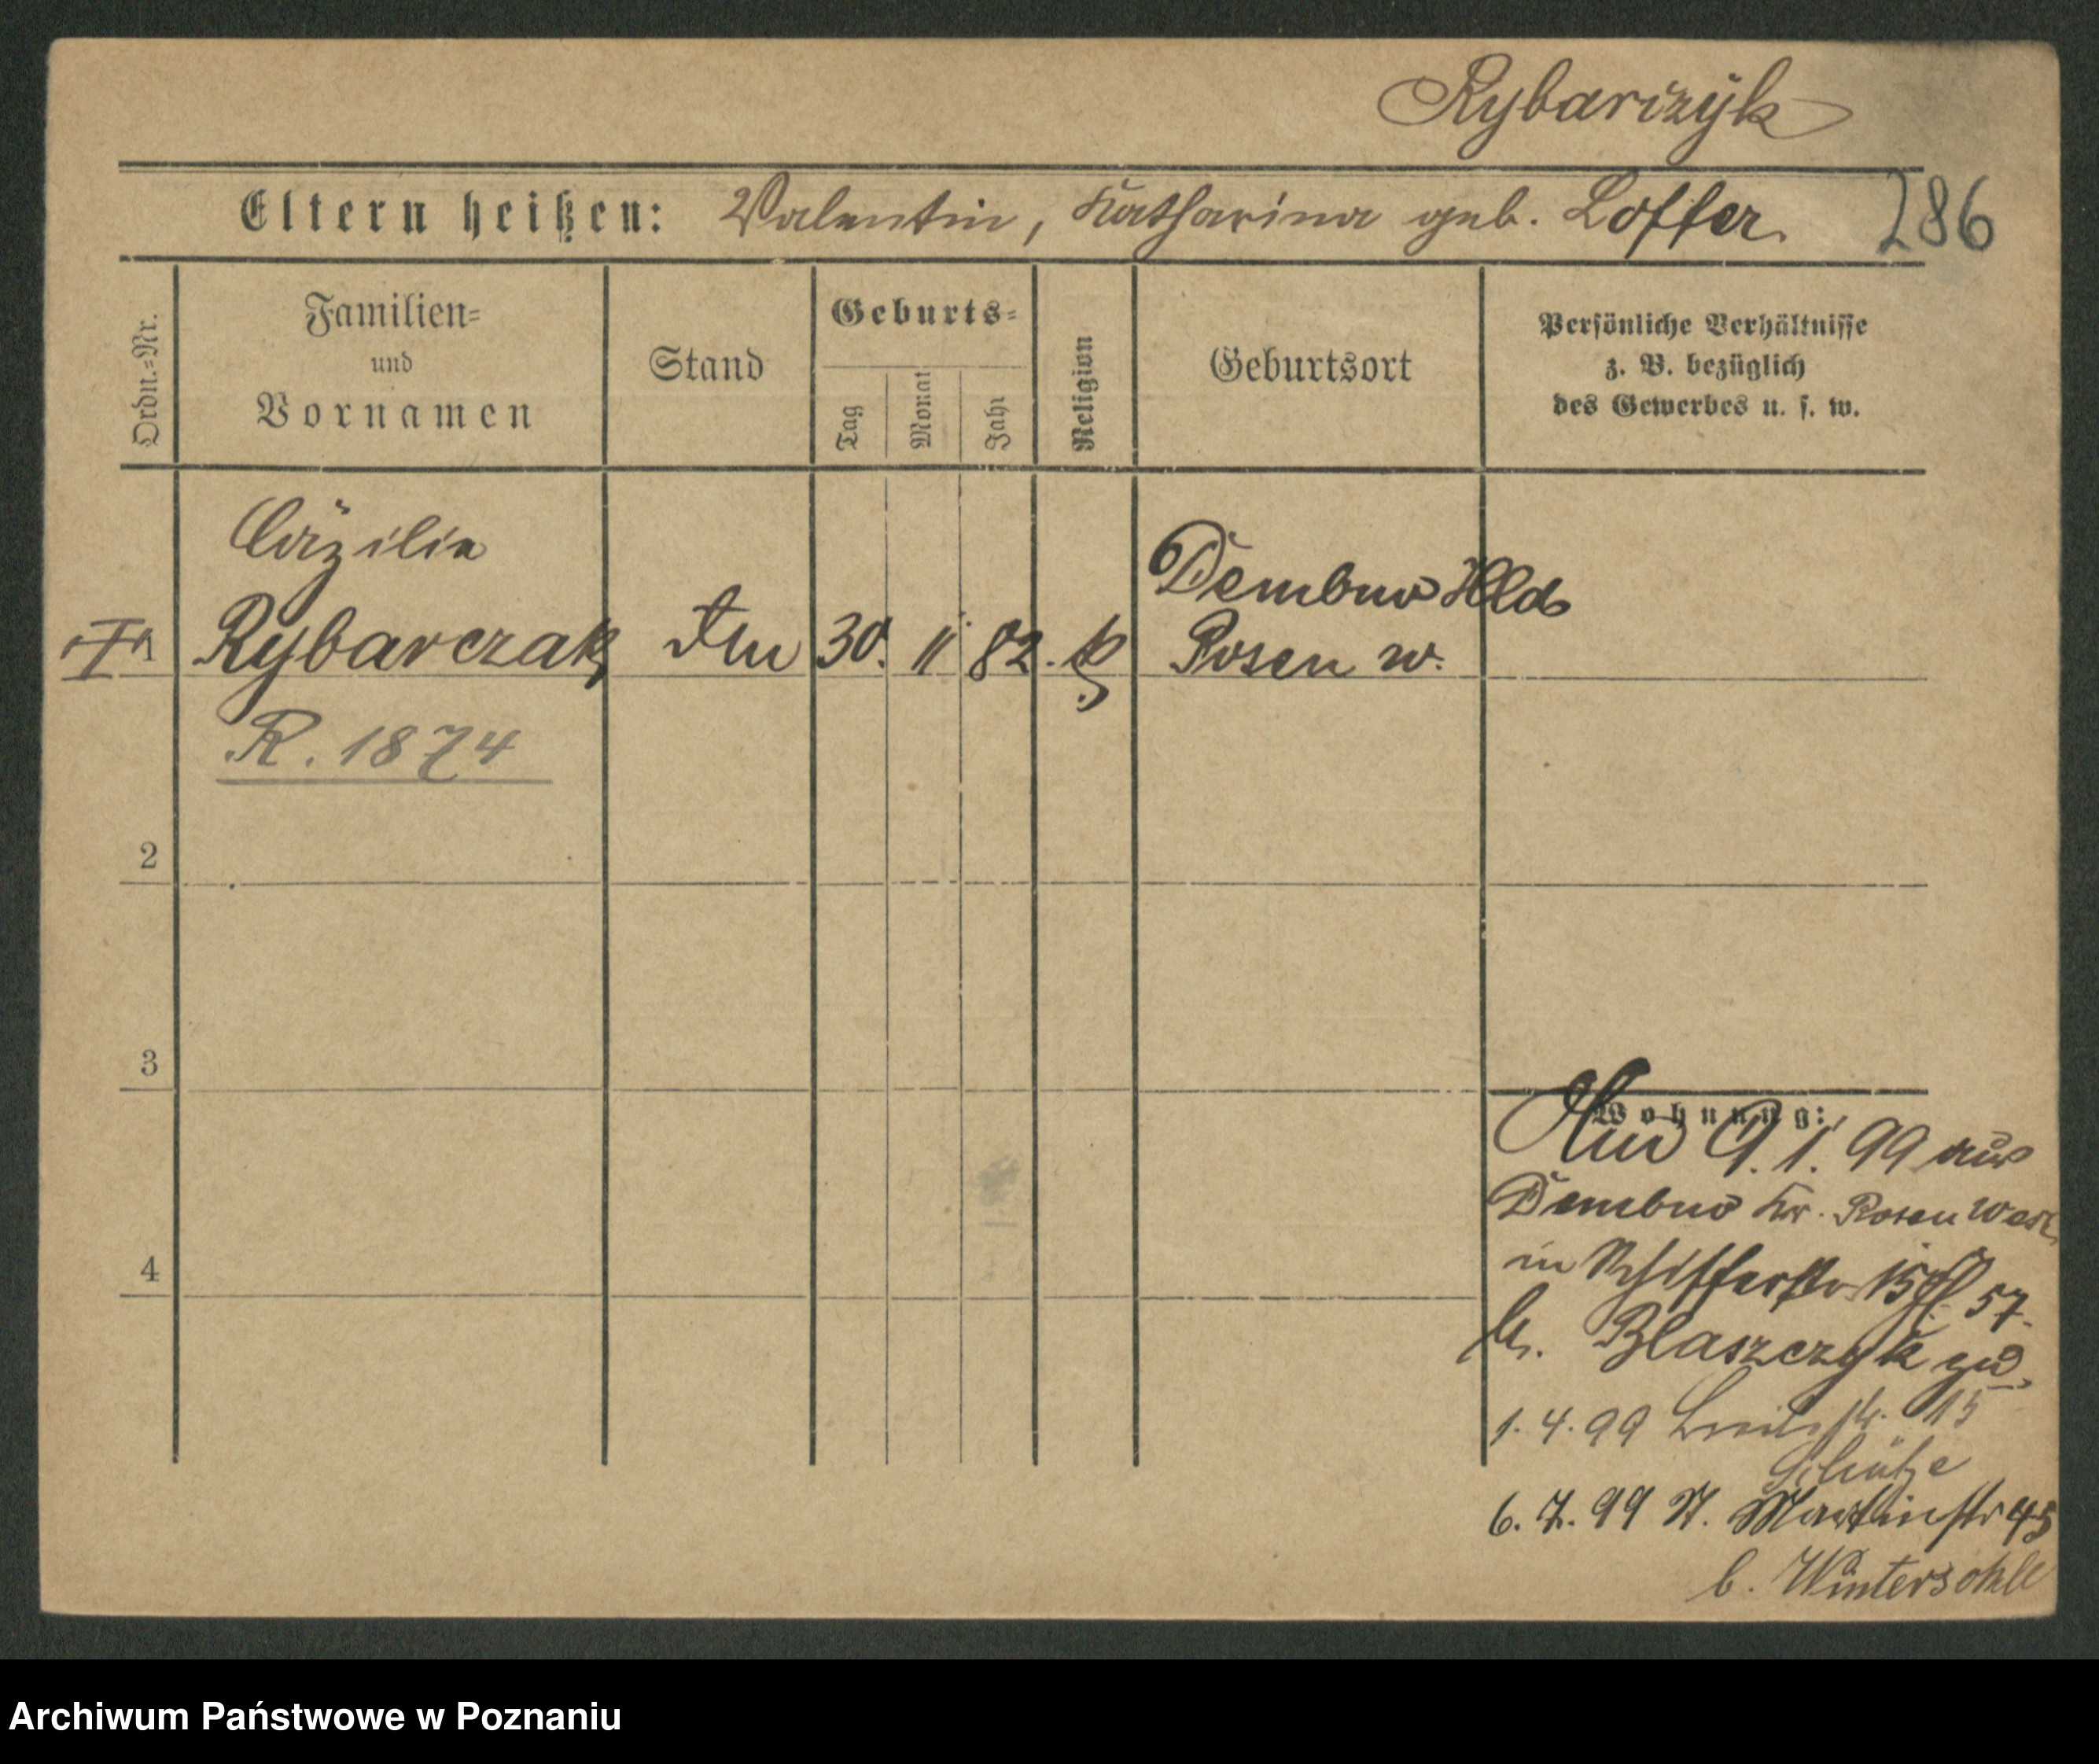 Rybarczyk
Eltern heißen: Valentin, Katharina geb. Loffer.
286
Ordn.-Nr.
Familien-
und
Vornamen
Stand
Geburts-
Tag
Monat
Jahr
Religion
Geburtsort
Persönliche Verhältnisse
z. B. bezüglich
des Gewerbes u. s. w.
Cäzilia
Rybarczak
30. 11 82. k
Dembno Hld
Posen w.
R. 1874
2
3
4
Wohnung:
9. 1. 99 aus
Dembno Kr. Posen West
in Schifferstr 15
57.
Blaszczyk
1. 4. 99
15
Schulze
6. 7. 99 St. Martinstr 45
b. Wintersohle
Archiwum Państwowe w Poznaniu